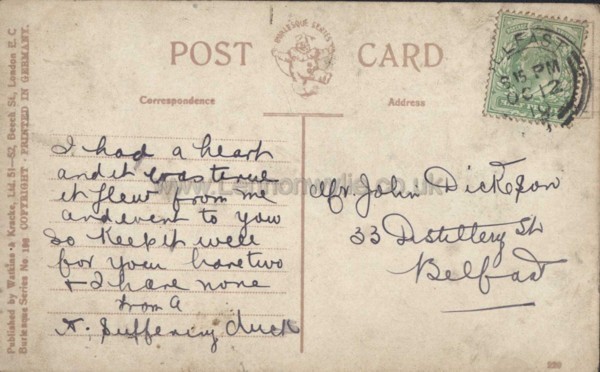 POST CARD
BURLESQUE SERIES
Correspondence
Address
BELFAST
8 15 PM
OC 12
I had a heart
and it was true
it flew from me
and went to you
So Keep it well
for you have two
& I have none
from a
A. Suffering duck
Mr John Dickson
33 Distillery St
Belfast
www.Lennonwylie.co.uk
Published by Watkins & Kracke, Ltd, 51-52, Beech St, London E.C.
Burlesque Series No. 198 COPYRIGHT - PRINTED IN GERMANY.